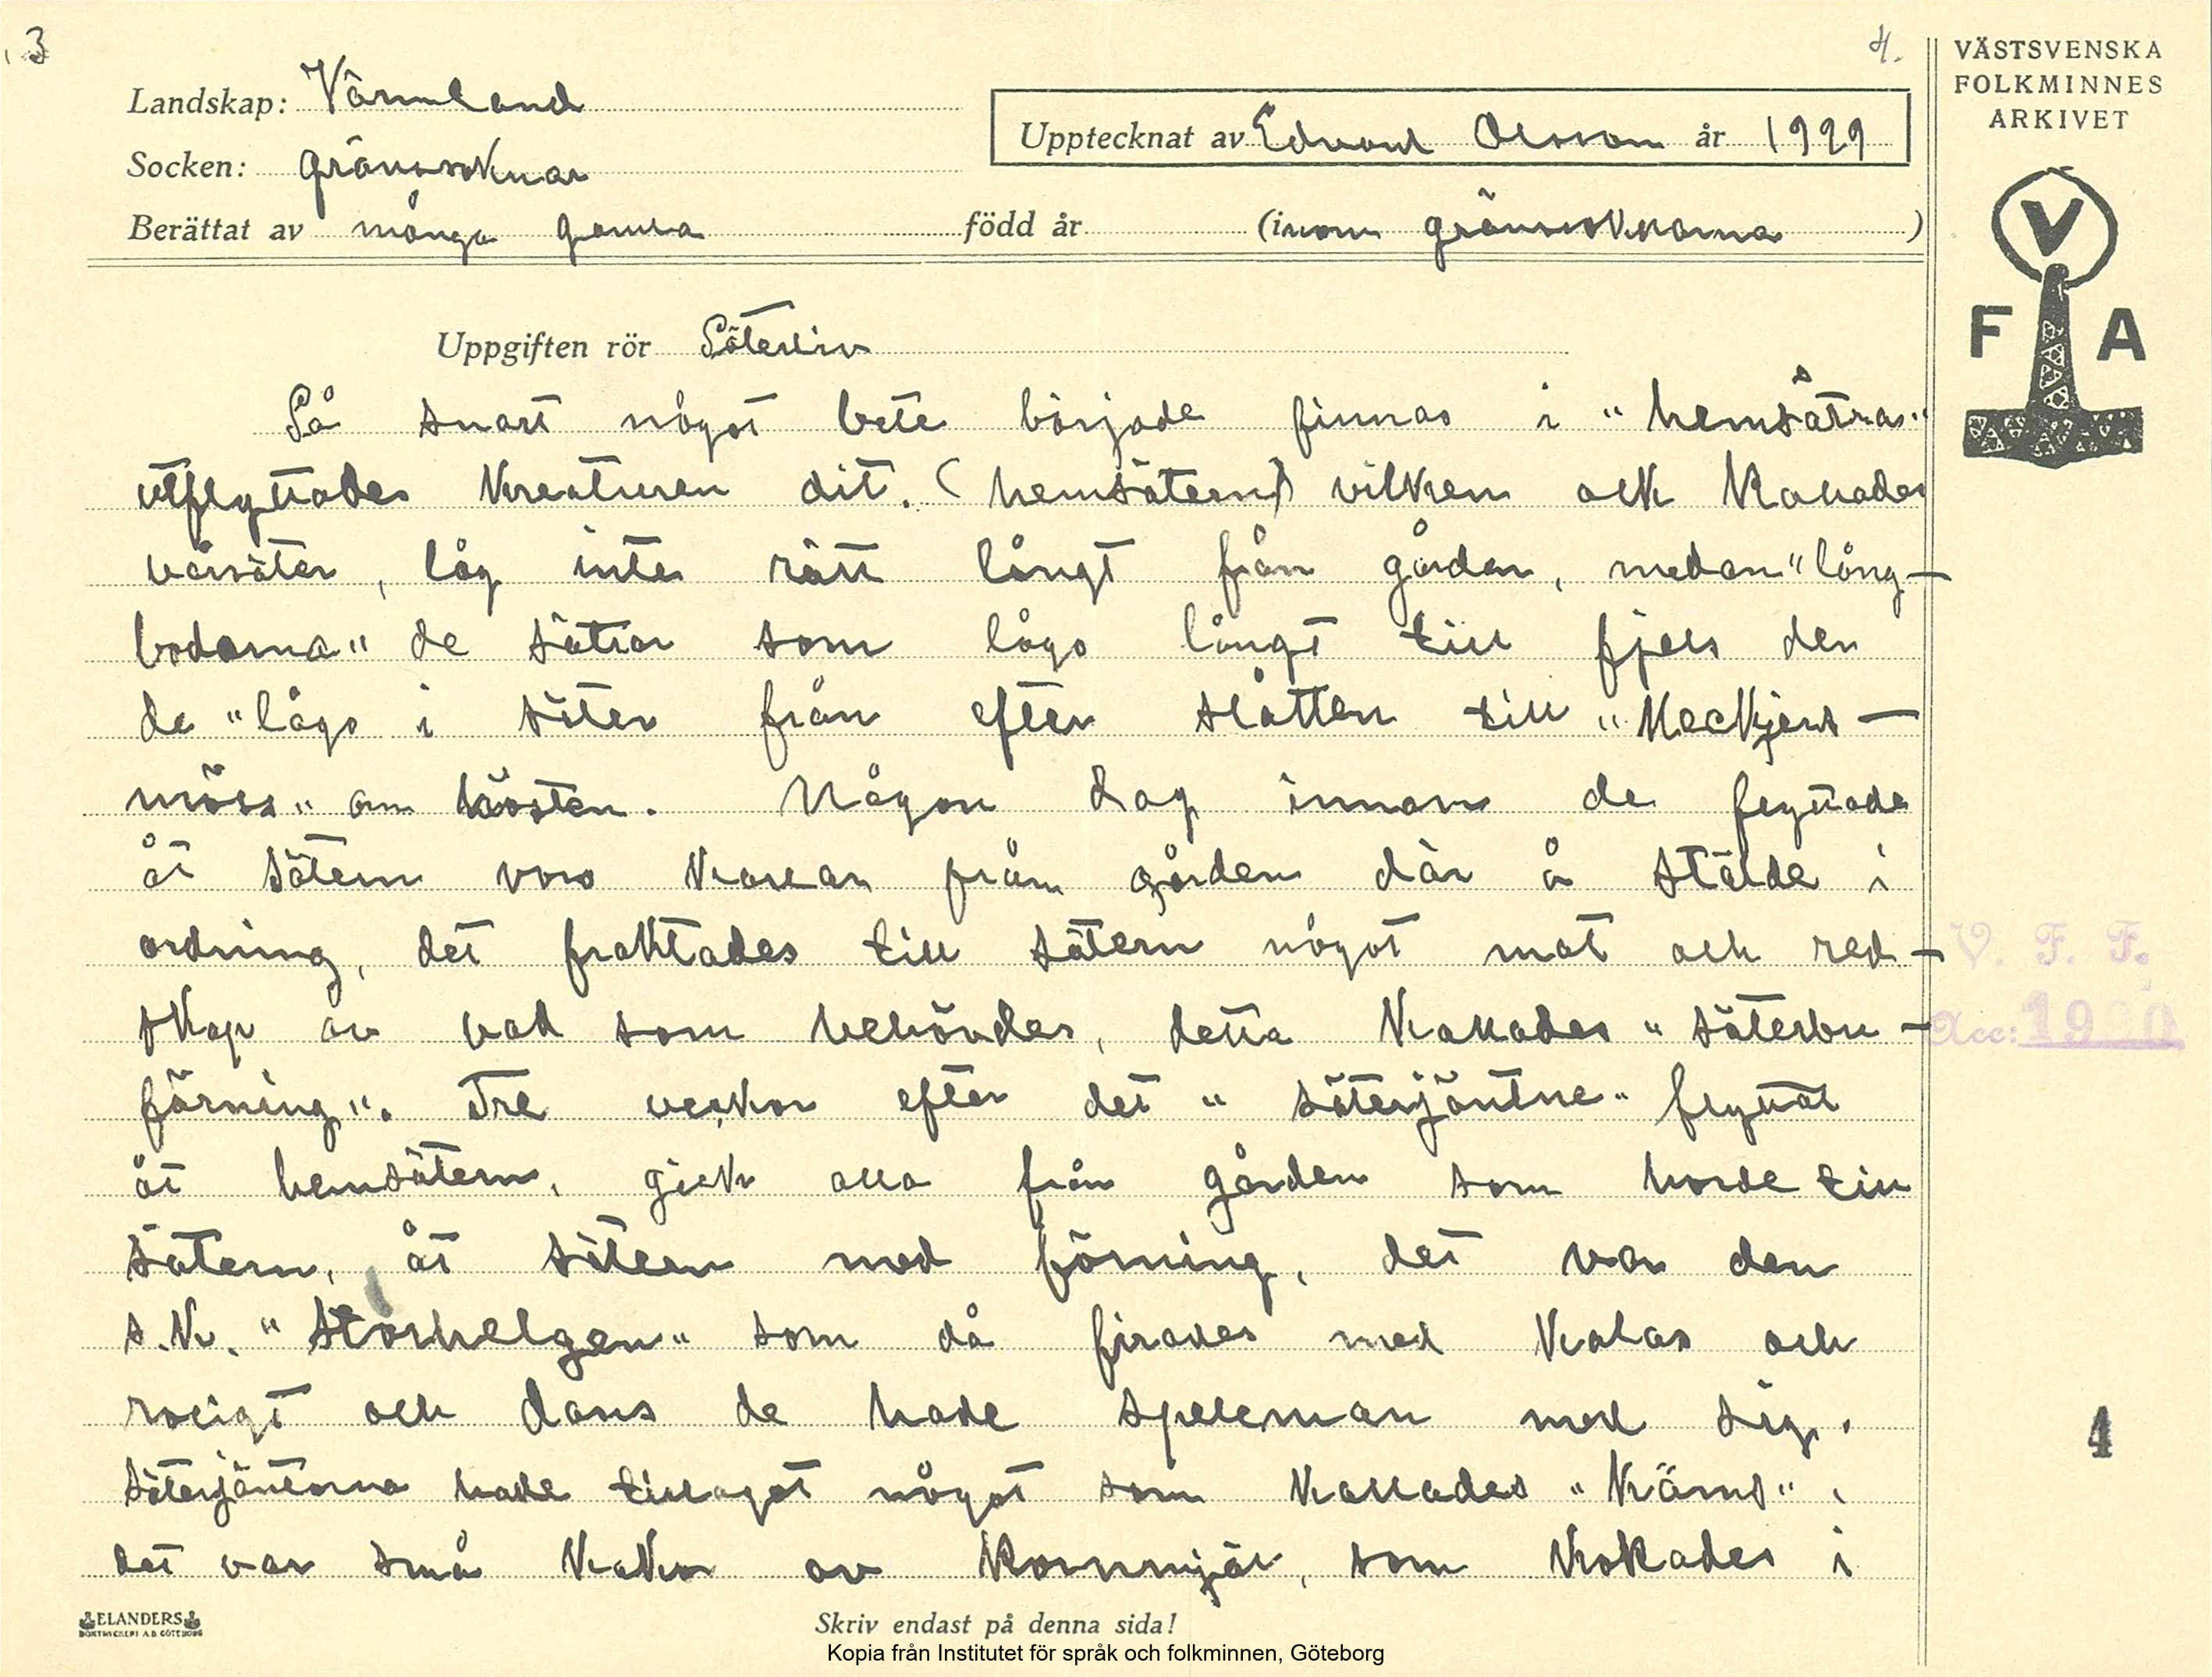 3
4.
VÄSTSVENSKA
FOLKMINNES
ARKIVET
Landskap: Värmland
Upptecknat av Edvard Olsson år 1929
Socken: gränssoknar
Berättat av många gamla född år (inom gränssoknarna)
V
F A
Uppgiften rör Säterliv
Så snart något bete började finnas i "hemsätra"
utflyttades kreaturen dit. (hemsätern) vilken ock kallades
vårsäter, låg inte rätt långt från gården, medan "lång-
bodarna" de sätrar som lågo långt till fjels den
de "lågo i säter från efter slåtten till "Meckjels-
mäss" om hösten. Någon dag innan de flyttade
åt sätern voro karlar från gården där å stälde i
ordning, det fraktades till sätern något mat och red-
skap av vad som behövdes, detta kallades "säterbu-
färning". Tre veckor efter det "säterjäntne" flyttat
åt hemsätern, gick alla från gården som horde till
sätern, åt sätern med förning, det var den
s.k. "Storhelgen" som då firades med kalas och
roligt och dans de hade speleman med sig.
Säterjäntorna hade tillagat något som kallades "Kräms",
det var små kakor av kornmjöl, som kokades i
V. F. F.
Acc: 19
4
ELANDERS
BOKTRYCKERI A.B. GÖTEBORG
Skriv endast på denna sida!
Kopia från Institutet för språk och folkminnen, Göteborg